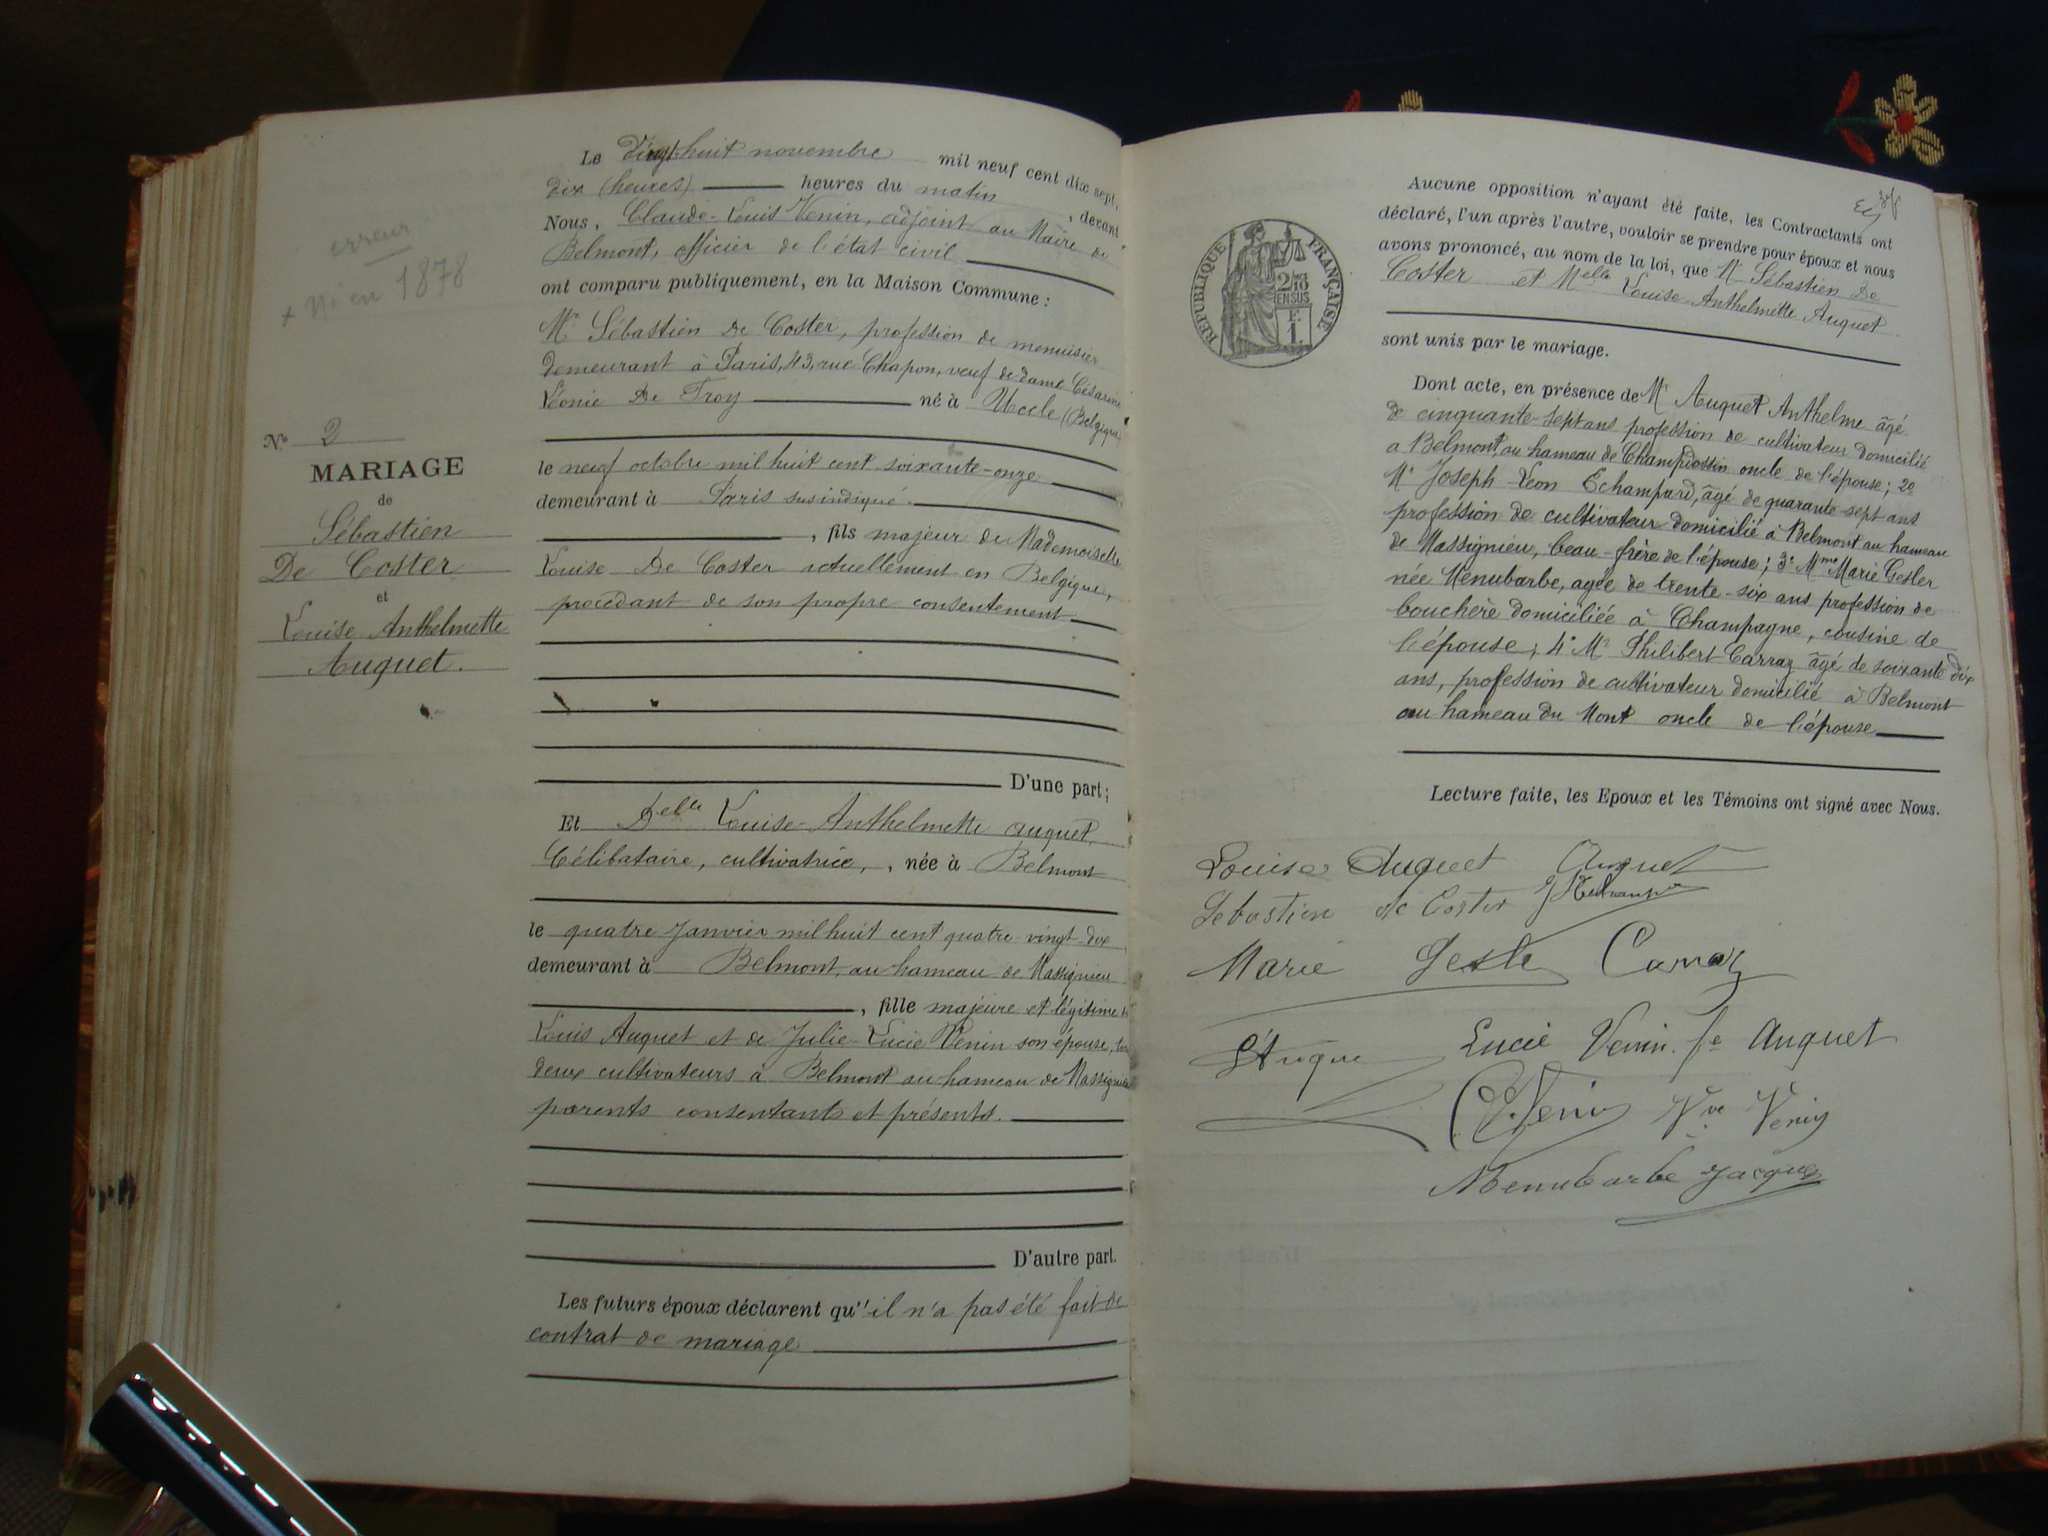 erreur
+ Né en 1878
N° 2
MARIAGE
de
Sébastien
De Coster
et
Louise Anthelmette
Auquet.
Le vingt-huit novembre mil neuf cent dix sept,
dix (heures) heures du matin, devant
Nous, Claude-Louis Venin, adjoint au Maire de
Belmont, officier de l'état civil
ont comparu publiquement, en la Maison Commune :
Mr Sébastien De Coster, profession de menuisier
demeurant à Paris, 43, rue Chapon, veuf de dame Césarine
Léonie De Troy né à Uccle (Belgique)
le neuf octobre mil huit cent soixante-onze
demeurant à Paris susindiqué.
, fils majeur de Mademoiselle
Louise De Coster actuellement en Belgique,
procédant de son propre consentement
D'une part;
Et Delle Louise-Anthelmette Auquet,
Célibataire, cultivatrice, , née à Belmont
le quatre Janvier mil huit cent quatre vingt-dix
demeurant à Belmont, au hameau de Massignieu
, fille majeure et légitime de
Louis Auquet et de Julie-Lucie Venin son épouse, tous
deux cultivateurs à Belmont au hameau de Massignieu
parents consentants et présents.
D'autre part.
Les futurs époux déclarent qu'il n'a pas été fait de
contrat de mariage
REPUBLIQUE FRANÇAISE
2/10
EN SUS
F.
1
Aucune opposition n'ayant été faite, les Contractants ont
déclaré, l'un après l'autre, vouloir se prendre pour époux et nous
avons prononcé, au nom de la loi, que Mr Sébastien De
Coster et Melle Louise Anthelmette Auquet
sont unis par le mariage.
Dont acte, en présence de Mr Auquet Anthelme âgé
de cinquante-sept ans profession de cultivateur domicilié
à Belmont au hameau de Champdossin oncle de l'épouse; 2e
Mr Joseph-Léon Echampard, âgé de quarante sept ans
profession de cultivateur domicilié à Belmont au hameau
de Massignieu, beau-frère de l'épouse; 3e Mme Marie Gesler
née Menubarbe, agée de trente-six ans profession de
bouchère domiciliée à Champagne, cousine de
l'épouse; 4e Mr Philibert Carraz âgé de soixante dix
ans, profession de cultivateur domicilié à Belmont
au hameau du Mont oncle de l'épouse
Lecture faite, les Epoux et les Témoins ont signé avec Nous.
Louise Auquet Auquet
Sebastien de Coster
Marie Gesle Carraz
Lucie Venin fe Auquet
Venin Vve Venin
Menubarbe Jacques